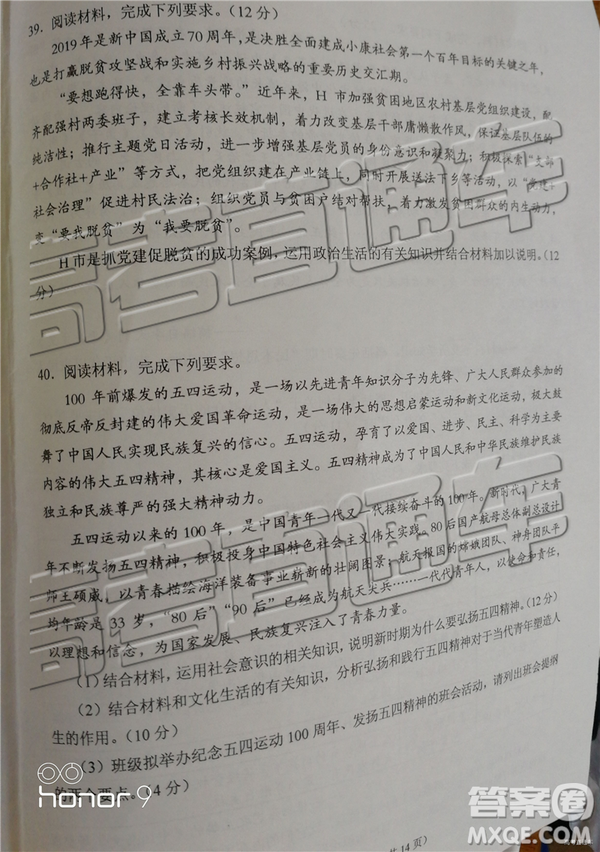 39. 阅读材料，完成下列要求。（12 分）
2019 年是新中国成立 70 周年，是决胜全面建成小康社会第一个百年目标的关键之年，
也是打赢脱贫攻坚战和实施乡村振兴战略的重要历史交汇期。
“要想跑得快，全靠车头带。”近年来，H 市加强贫困地区农村基层党组织建设，配
齐配强村两委班子，建立考核长效机制，着力改变基层干部庸懒散作风，保证基层队伍的
纯洁性；推行主题党日活动，进一步增强基层党员的身份意识和凝聚力；积极探索“支部
+合作社+产业”等方式，把党组织建在产业链上，同时开展送法下乡等活动，以“
社会治理”促进村民法治；组织党员与贫困户结对帮扶，着力激发贫困群众的内生动力，
变“要我脱贫”为“我要脱贫”。
H 市是抓党建促脱贫的成功案例，运用政治生活的有关知识并结合材料加以说明。（12
分）
40. 阅读材料，完成下列要求。
100 年前爆发的五四运动，是一场以先进青年知识分子为先锋、广大人民群众参加的
彻底反帝反封建的伟大爱国革命运动，是一场伟大的思想启蒙运动和新文化运动，以全
舞了中国人民实现民族复兴的信心。五四运动，孕育了以爱国、进步、民主、科学为主要
内容的伟大五四精神，其核心是爱国主义。五四精神成为了中国人民和中华民族维护民族
独立和民族尊严的强大精神动力。
五四运动以来的 100 年，是中国青年一代又一代接续奋斗的 100 年。新时代，广大青
年不断发扬五四精神，积极投身中国特色社会主义伟大实践。80 后国产航母总体副总设计
师王硕威，以青春描绘海洋装备事业崭新的壮阔图景；航天报国的嫦娥团队、神舟团队平
均年龄是 33 岁，“80 后”“90 后”已经成为航天尖兵……一代代青年人，以使命和责任，
以理想和信念，为国家发展、民族复兴注入了青春力量。
（1）结合材料，运用社会意识的相关知识，说明新时期为什么要弘扬五四精神。（12 分）
（2）结合材料和文化生活的有关知识，分析弘扬和践行五四精神对于当代青年塑造人
生的作用。（10 分）
（3）班级拟举办纪念五四运动 100 周年、发扬五四精神的班会活动，请列出班会提纲
的两个要点。（4 分）
共 14 页）
高考直通车
高考直通车
高考直通车
honor 9
答案圈
MXQE.COM